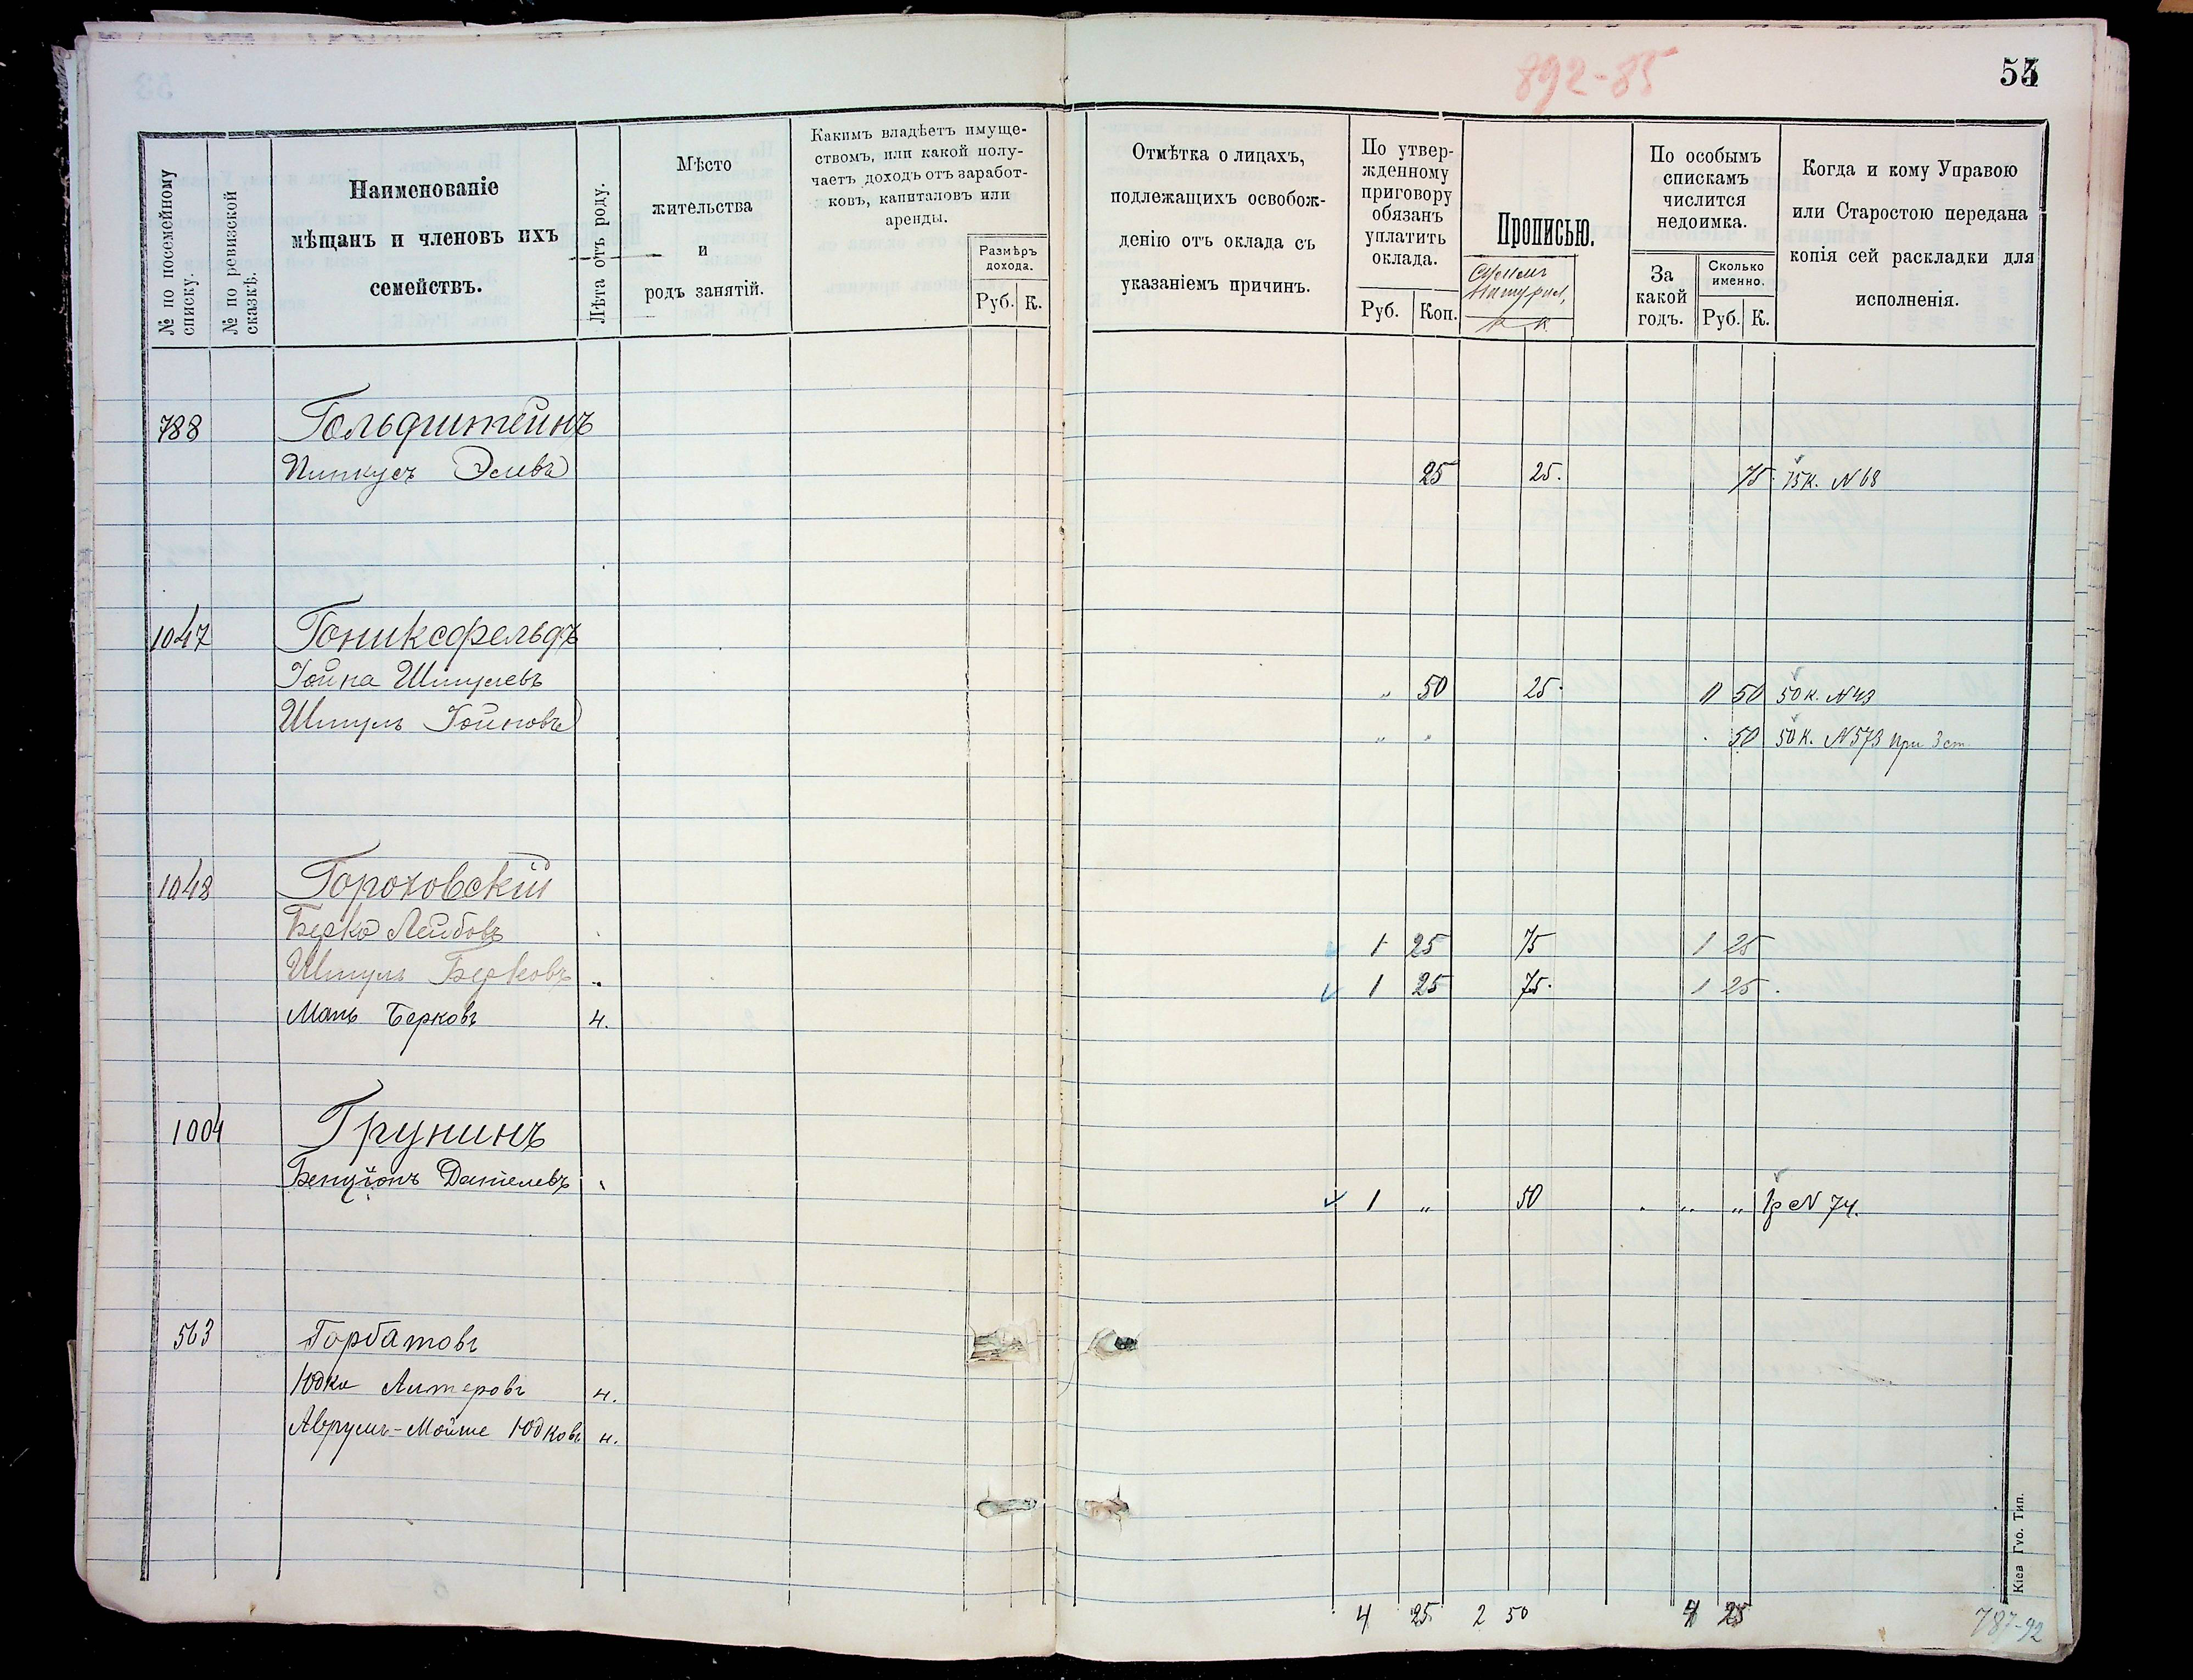 892-85
54
№ по посемейному списку.
№ по ревизской сказкѣ.
Наименованіе
мѣщанъ и членовъ ихъ
семействъ.
Лѣта отъ роду.
Мѣсто
жительства
и
родъ занятій.
Какимъ владѣетъ имуще-
ствомъ, или какой полу-
чаетъ доходъ отъ заработ-
ковъ, капиталовъ или
аренды.
Размѣръ
дохода.
Руб. К.
Отмѣтка о лицахъ,
подлежащихъ освобож-
денію отъ оклада съ
указаніемъ причинъ.
По утвер-
жденному
приговору
обязанъ
уплатить
оклада.
Руб. Коп.
Прописью.
По особымъ
спискамъ
числится
недоимка.
За
какой
годъ.
Сколько
именно.
Руб. К.
Когда и кому Управою
или Старостою передана
копія сей раскладки для
исполненія.
788 Гольдштейнъ
Пинкусъ Элевъ 25 25. 75. 75к. N 68
1047 Гониксфельдъ
Гойна Шмулевъ " 50 25. 50 50к. N 43
Шмуль Гойновъ " " 50 50к. N 573 при 3 ст.
1048 Гороховскій
Берко Лейбовъ 1 25 75 1 25
Шмуль Берковъ 1 25 75. 1 25.
Мань Берковъ н.
1004 Грунинъ
Бенціонъ Даніелевъ 1 " 50 " " 1р N 74.
563 Горбатовъ
Юдко Алтеровъ н.
Аврумъ-Мойше Юдковъ н.
4 25 2 50 4 25
787-92
Кіев Губ. Тип.